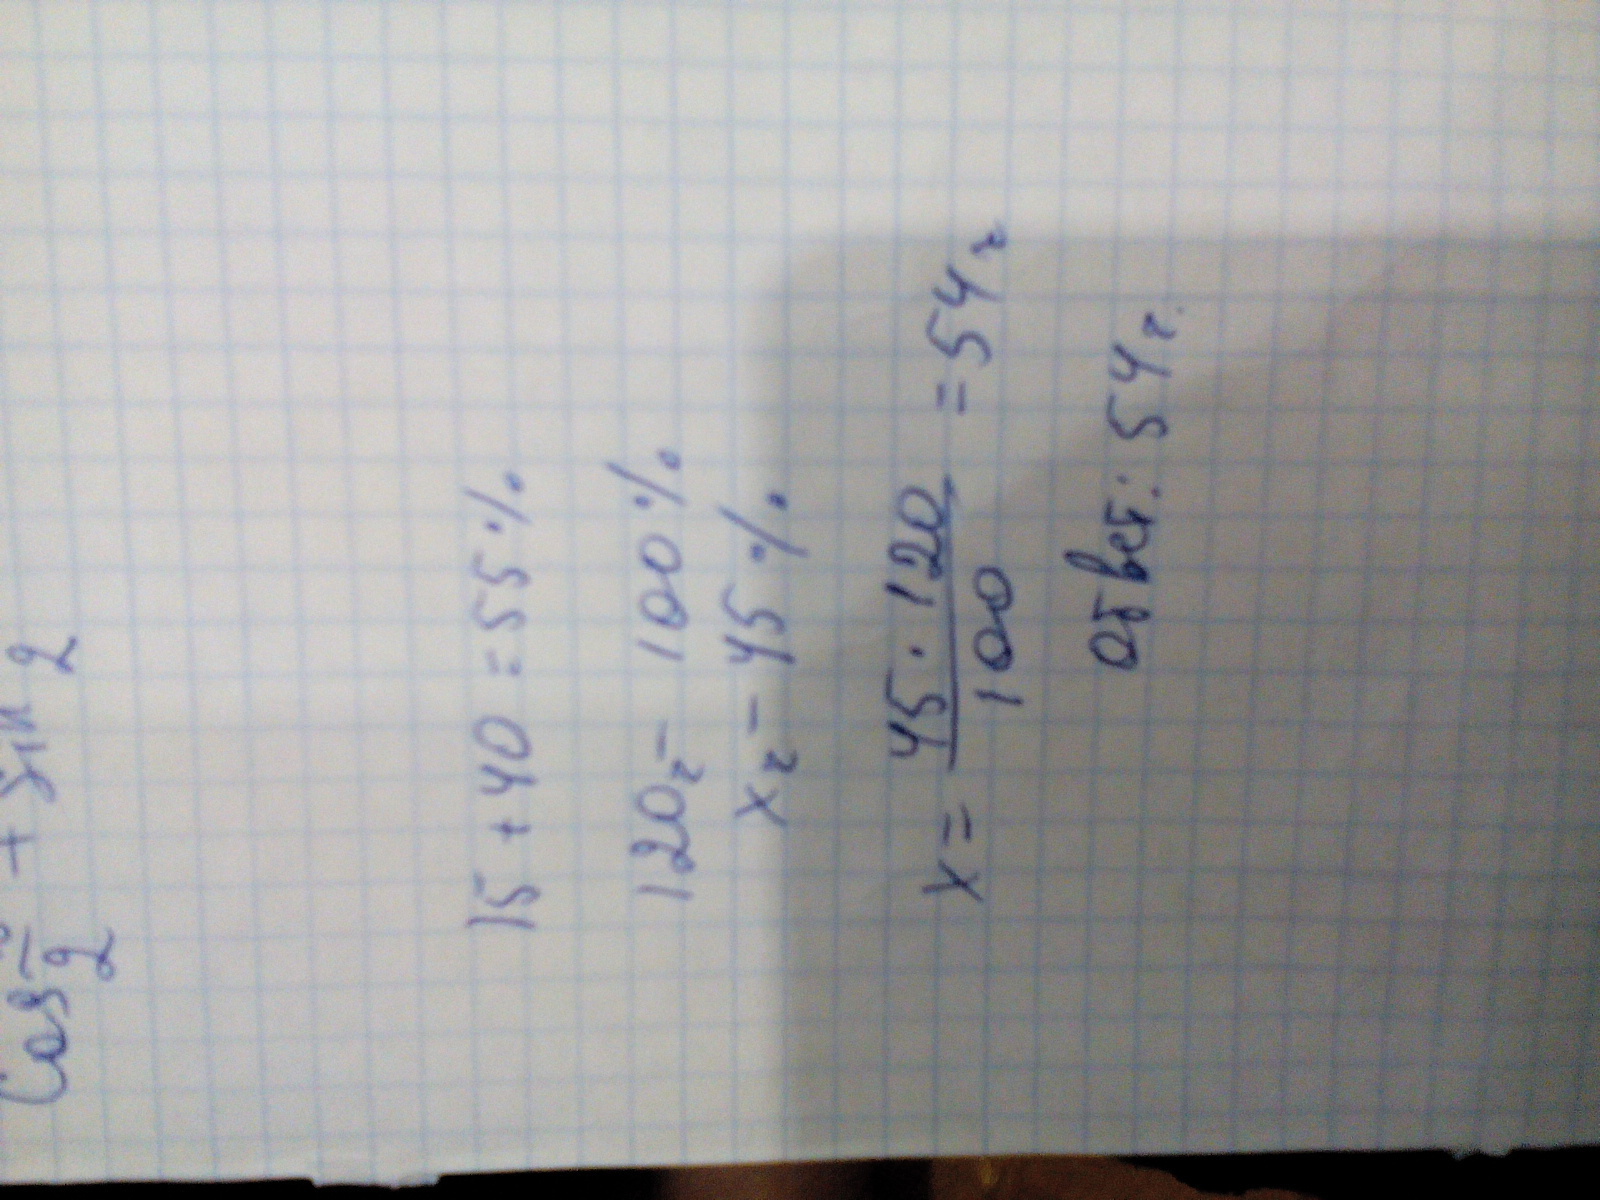 Cos 2 + Sin 2
15 + 40 = 55%
120г - 100%
xг - 45%
x = 45 · 120 / 100 = 54г
ответ: 54г.